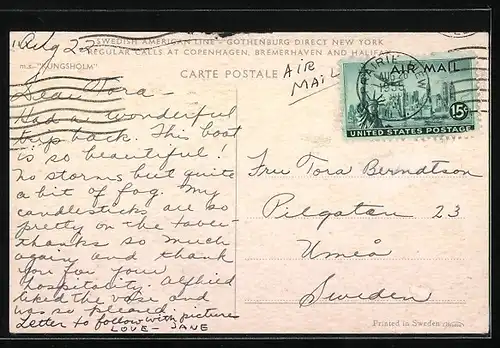 Aug 22
SWEDISH AMERICAN LINE - GOTHENBURG DIRECT NEW YORK
REGULAR CALLS AT COPENHAGEN, BREMERHAVEN AND HALIFAX
m.s. "KUNGSHOLM"
CARTE POSTALE
AIR
MAIL
AIR MAIL
15¢
UNITED STATES POSTAGE
PRAIRIE
AUG
Dear Tora -
Had a wonderful
trip back. This boat
is so beautiful!
No storms but quite
a bit of fog. My
candlesticks are so
pretty on the table -
thanks so much
again and thank
you for your
hospitality. Alfhild
liked the vase and
was so pleased.
Letter to follow with picture
LOVE - JANE
Fru Tora Berndtson
Pilgatan 23
Umeå
Sweden
Printed in Sweden